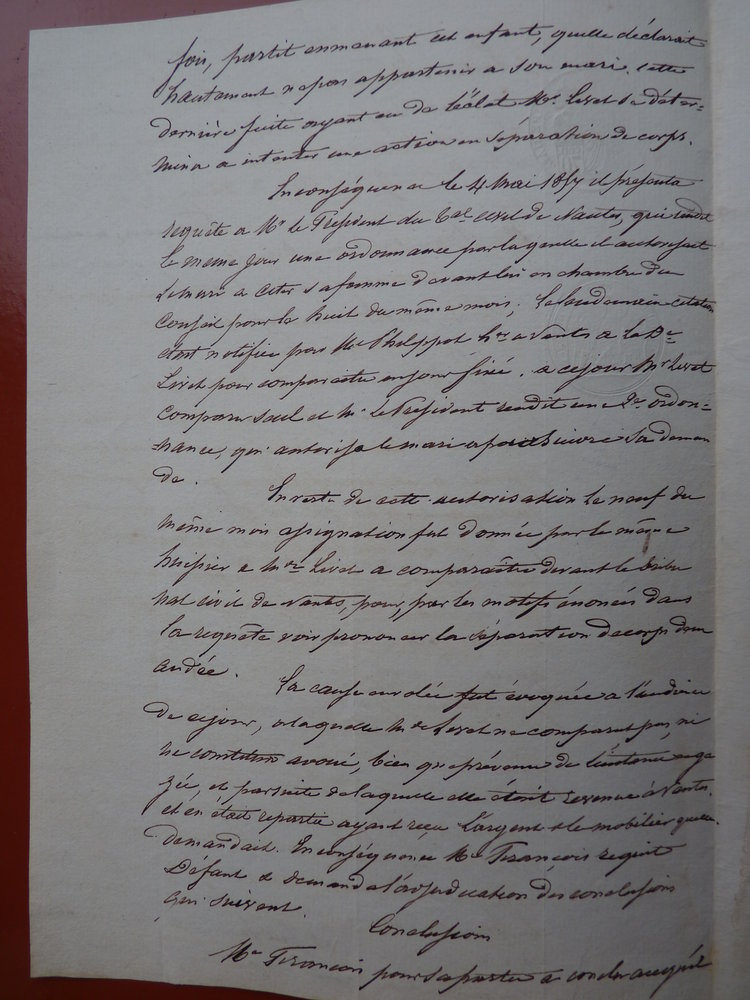 fois, partit enmenant cet enfant, quelle déclarait
hautement nepas appartenir a son mari. cette
dernière fuite ayant eu de l'éclat Mr. Livet se déter-
mina a intenter une action en séparation de corps.
En conséquence le 4 Mai 1857 il présenta
requête a Mr le Président du Cal civil de Nantes, qui rendit
le même jour une ordonnance par laquelle il autorisait
le mari a citer sa femme devant lui en chambre du
Conseil pour le huit du même mois; le lendemain citation
était notifiée par Me Philippot hier a Nantes a la De
Livet pour comparaitre au jour fixé. a ce jour Mr Livet
comparu seul et M. le Président rendit une 2e ordon-
-nance, qui autorisa le mari a poursuivre sa deman
de.
En vertu de cette autorisation le neuf du
même mois assignation fut donnée par le même
huissier a Mme Livet a comparaître devant le tribu
nal civil de Nantes, pour, par les motifs énoncés dans
la requête voir prononcer la séparation de corps dem
andée.
La cause enrolée fut évoquée a l'audience
de ce jour, a laquelle Mme Livet ne comparut pas, ni
ne constitua avoué, bien que prévenue de l'instance enga
gée, et par suite de laquelle elle était revenue à Nantes,
et en était repartie ayant reçu l'argent & le mobilier quelle
demandait. En conséquence Me François requit
Défaut & demanda l'adjudication des conclusions
qui suivent.
Conclusions
Me François pour sa partie a conclu